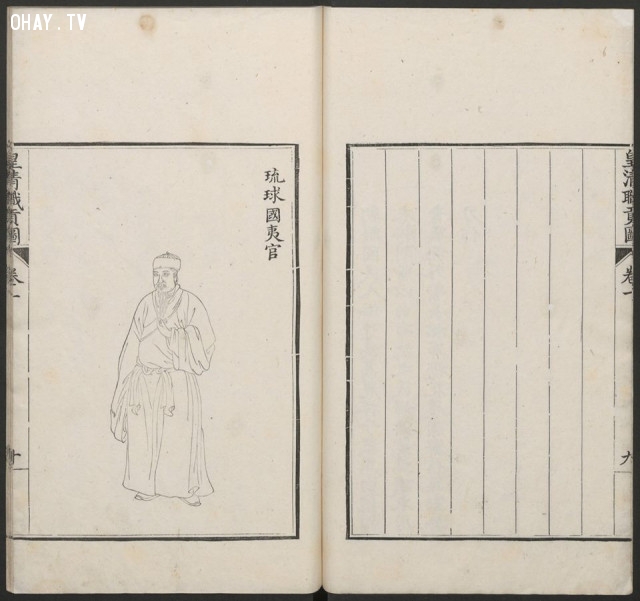 OHAY.TV
皇清職貢圖
卷一
九
琉球國夷官
皇清職貢圖
卷一
十